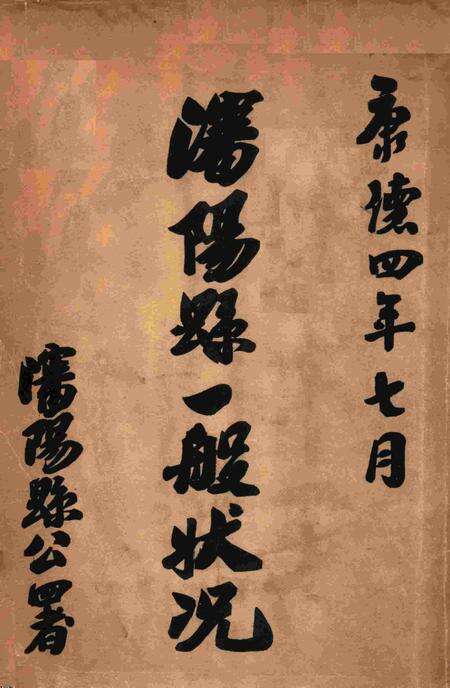 康德四年七月
瀋陽縣一般狀況
瀋陽縣公署